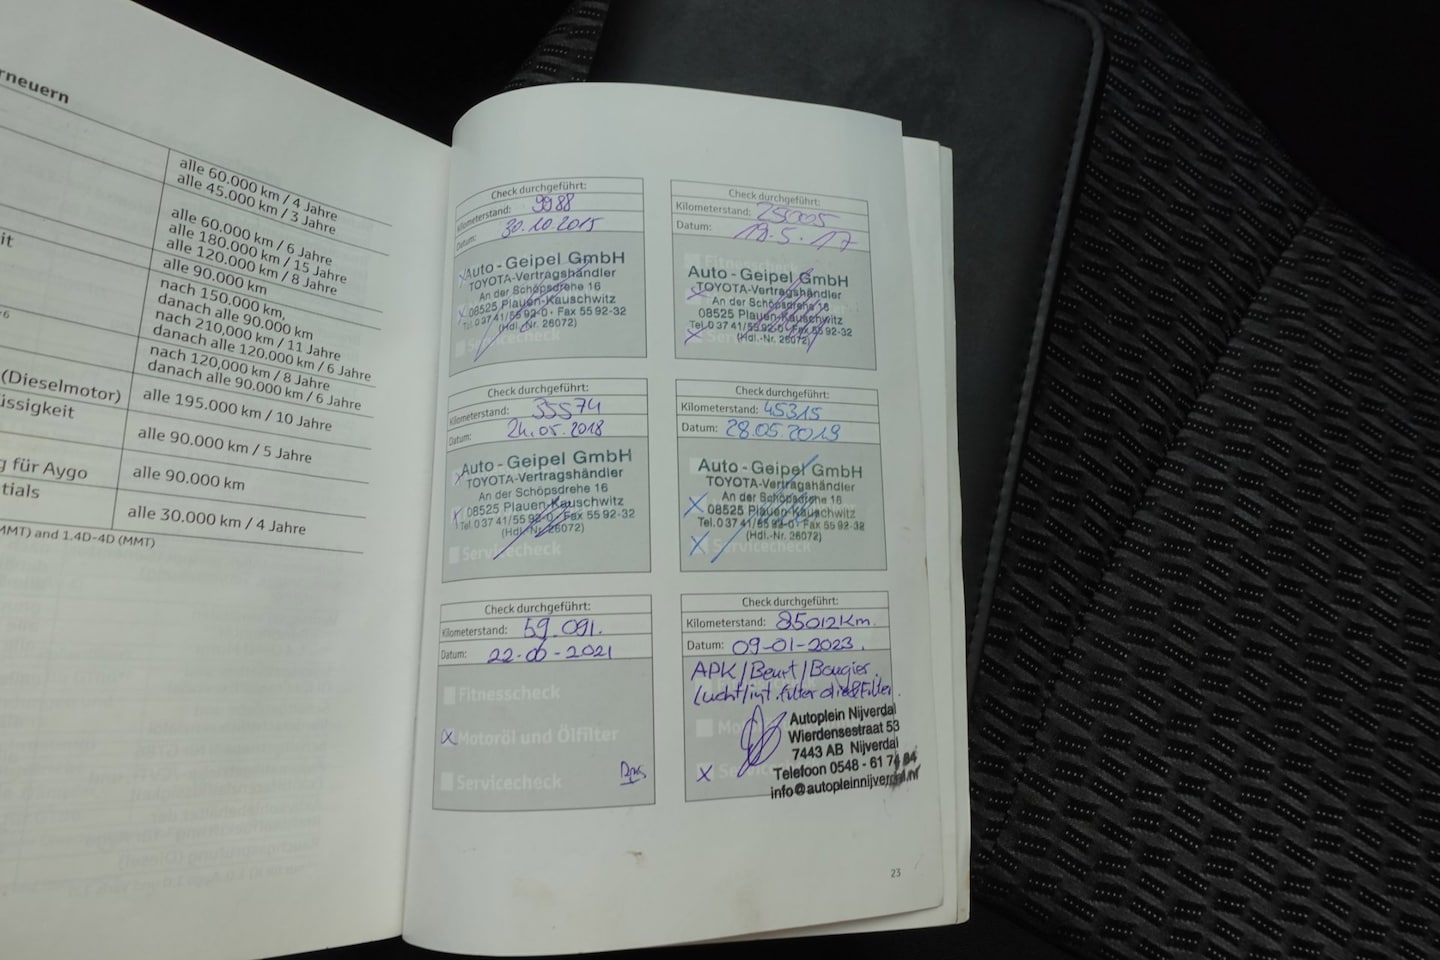 rneuern
alle 60.000 km / 4 Jahre
alle 45.000 km / 3 Jahre
alle 60.000 km / 6 Jahre
alle 180.000 km / 15 Jahre
it
alle 120.000 km / 8 Jahre
alle 90.000 km
nach 150.000 km,
danach alle 90.000 km
6
nach 210,000 km / 11 Jahre
danach alle 120.000 km / 6 Jahre
nach 120,000 km / 8 Jahre
danach alle 90.000 km / 6 Jahre
(Dieselmotor)
alle 195.000 km / 10 Jahre
üssigkeit
alle 90.000 km / 5 Jahre
g für Aygo
alle 90.000 km
tials
alle 30.000 km / 4 Jahre
MMT) and 1.4D-4D (MMT)
Check durchgeführt:
Kilometerstand: 9988
Datum: 30.10.2015
Auto - Geipel GmbH
TOYOTA-Vertragshändler
An der Schöpsdrehe 16
08525 Plauen-Kauschwitz
Tel. 0 37 41/55 92-0 · Fax 55 92-32
(Hdl.-Nr. 26072)
Servicecheck
Check durchgeführt:
Kilometerstand: 25005
Datum: 19.5.17
Fitnesscheck
Auto - Geipel GmbH
TOYOTA-Vertragshändler
An der Schöpsdrehe 16
08525 Plauen-Kauschwitz
Tel. 0 37 41/55 92-0 · Fax 55 92-32
(Hdl.-Nr. 26072)
Servicecheck
Check durchgeführt:
Kilometerstand: 35574
Datum: 24.05.2018
Auto - Geipel GmbH
TOYOTA-Vertragshändler
An der Schöpsdrehe 16
08525 Plauen-Kauschwitz
Tel. 0 37 41/55 92-0 · Fax 55 92-32
(Hdl.-Nr. 26072)
Servicecheck
Check durchgeführt:
Kilometerstand: 45315
Datum: 28.05.2019
Auto - Geipel GmbH
TOYOTA-Vertragshändler
An der Schöpsdrehe 16
08525 Plauen-Kauschwitz
Tel. 0 37 41/55 92-0 · Fax 55 92-32
(Hdl.-Nr. 26072)
Servicecheck
Check durchgeführt:
Kilometerstand: 59.091.
Datum: 22-06-2021
Fitnesscheck
x Motoröl und Ölfilter
Servicecheck
Check durchgeführt:
Kilometerstand: 85012Km.
Datum: 09-01-2023.
APK/Beurt/Bougies.
Lucht/int.filter
Autoplein Nijverdal
Wierdensestraat 53
7443 AB Nijverdal
Telefoon 0548 - 61 74 84
info@autopleinnijverdal.nl
23